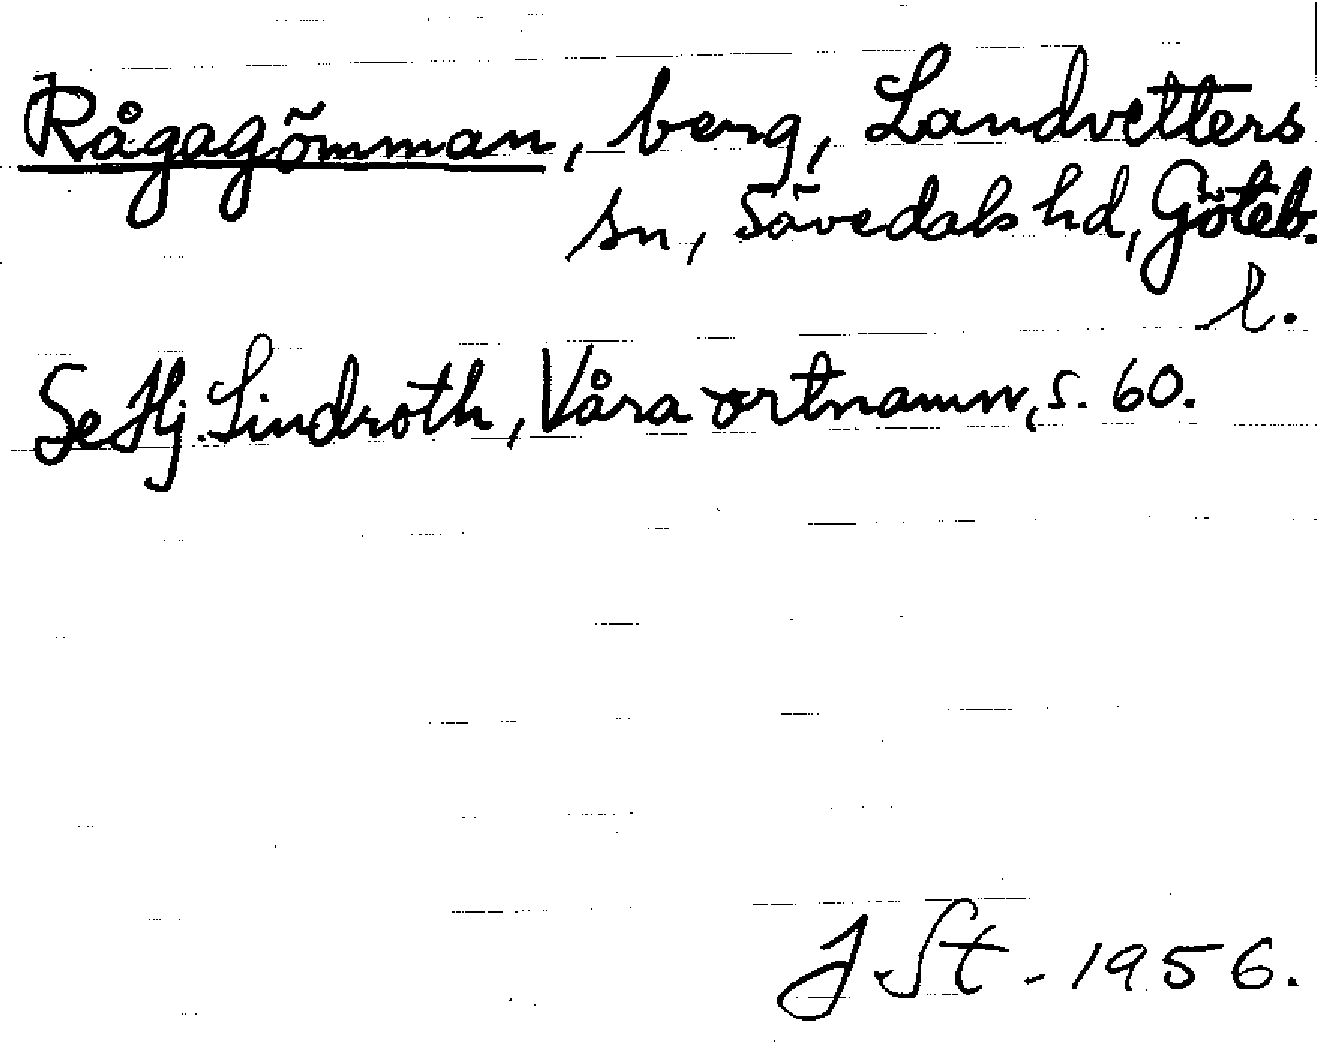 Rågagömman, berg, Landvetters
sn, Sävedals hd, Göteb.
l.
Se Hj. Lindroth, Våra ortnamn, s. 60.
J. St. 1956.